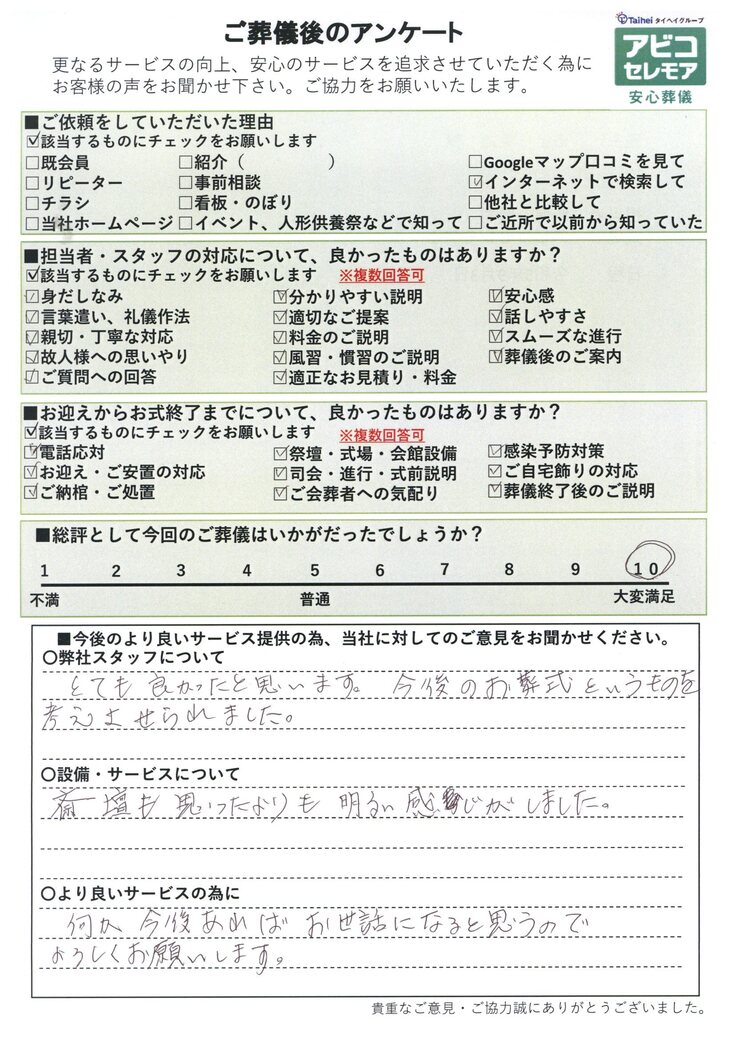 ご葬儀後のアンケート
Taihei タイヘイグループ
アビコ
セレモア
安心葬儀
更なるサービスの向上、安心のサービスを追求させていただく為に
お客様の声をお聞かせ下さい。ご協力をお願いいたします。
■ご依頼をしていただいた理由
☑該当するものにチェックをお願いします
□既会員 □紹介（　　　　） □Googleマップ口コミを見て
□リピーター □事前相談 ☑インターネットで検索して
□チラシ □看板・のぼり □他社と比較して
□当社ホームページ □イベント、人形供養祭などで知って □ご近所で以前から知っていた
■担当者・スタッフの対応について、良かったものはありますか？
☑該当するものにチェックをお願いします ※複数回答可
☑身だしなみ ☑分かりやすい説明 ☑安心感
☑言葉遣い、礼儀作法 ☑適切なご提案 ☑話しやすさ
☑親切・丁寧な対応 ☑料金のご説明 ☑スムーズな進行
☑故人様への思いやり ☑風習・慣習のご説明 ☑葬儀後のご案内
☑ご質問への回答 ☑適正なお見積り・料金
■お迎えからお式終了までについて、良かったものはありますか？
☑該当するものにチェックをお願いします ※複数回答可
☑電話応対 ☑祭壇・式場・会館設備 ☑感染予防対策
☑お迎え・ご安置の対応 ☑司会・進行・式前説明 ☑ご自宅飾りの対応
☑ご納棺・ご処置 ☑ご会葬者への気配り ☑葬儀終了後のご説明
■総評として今回のご葬儀はいかがだったでしょうか？
1 2 3 4 5 6 7 8 9 10
不満 普通 大変満足
■今後のより良いサービス提供の為、当社に対してのご意見をお聞かせください。
〇弊社スタッフについて
とても良かったと思います。今後のお葬式というものを
考えさせられました。
〇設備・サービスについて
斎壇も思ったよりも明るい感じがしました。
〇より良いサービスの為に
何か今後あればお世話になると思うので
よろしくお願いします。
貴重なご意見・ご協力誠にありがとうございました。